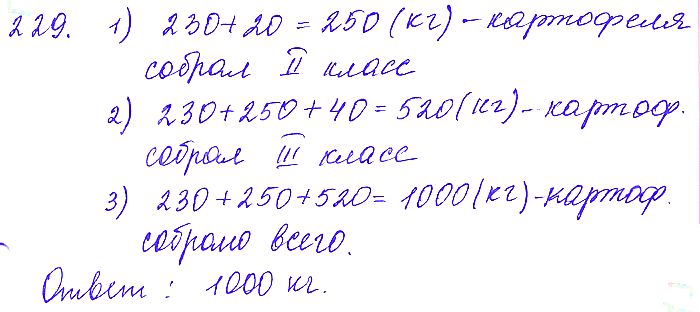 229. 1) 230+20 = 250 (кг) - картофеля
собрал II класс
2) 230+250+40 = 520 (кг) - картоф.
собрал III класс
3) 230+250+520= 1000 (кг) - картоф.
собрано всего.
Ответ : 1000 кг.